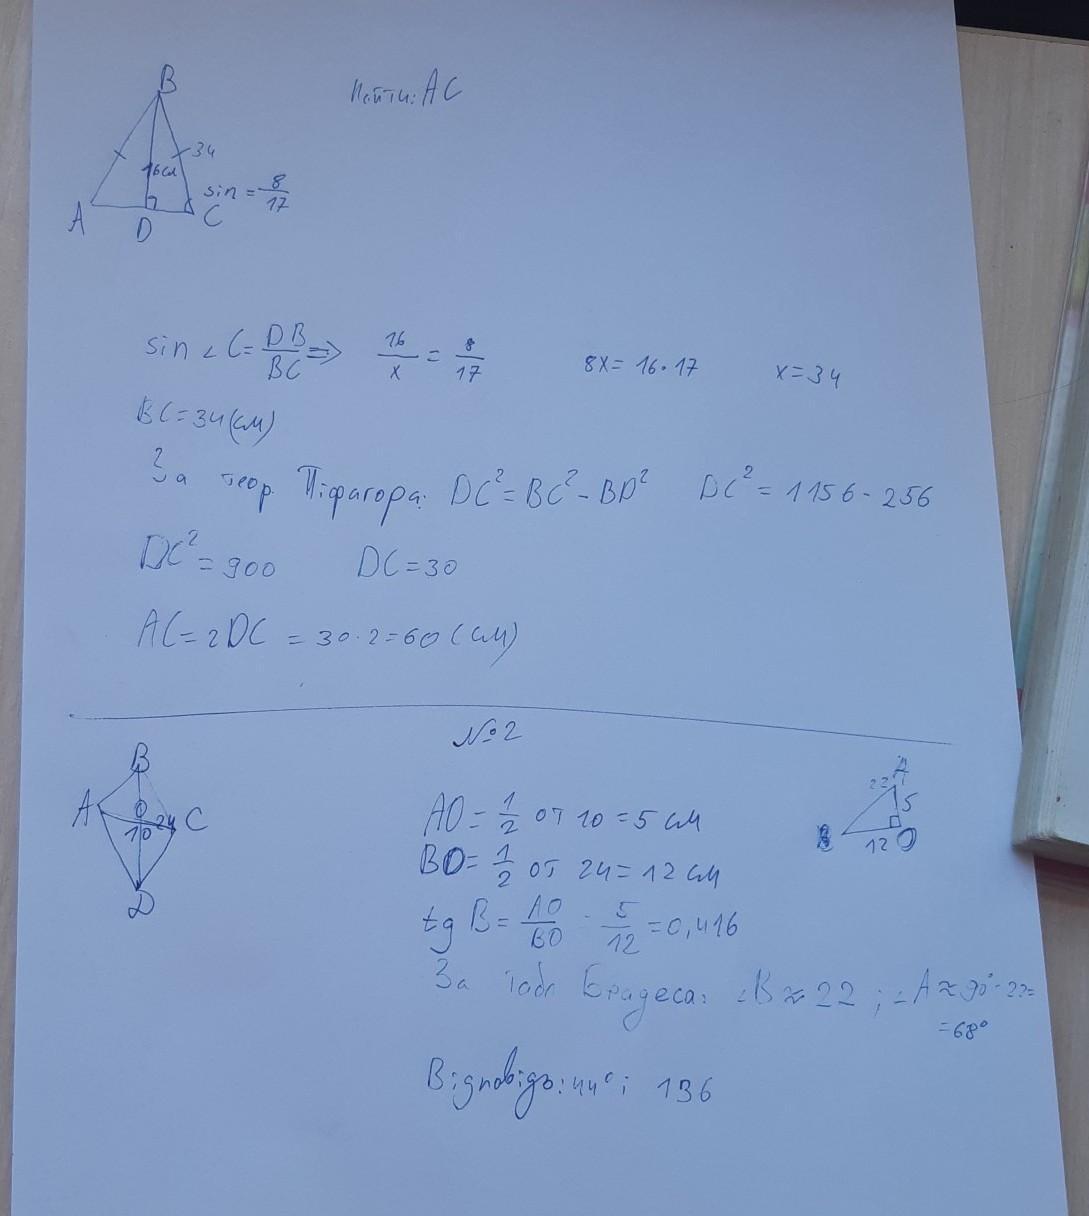 B
Найти: AC
34
16см
sin = 8/17
A D C
sin ∠C = DB/BC => 16/x = 8/17 8x = 16·17 x = 34
BC = 34 (см)
За теор. Піфагора: DC² = BC² - BD² DC² = 1156 - 256
DC² = 900 DC = 30
AC = 2DC = 30·2 = 60 (см)
№2
B
A O C
10 24
D
A
22 5
12 O
AO = 1/2 от 10 = 5 см
BO = 1/2 от 24 = 12 см
tg B = AO/BO - 5/12 = 0,416
За табл Брадеса: ∠B ≈ 22 ; ∠A ≈ 90° - 22=
= 68°
Відповідь: 44° ; 136